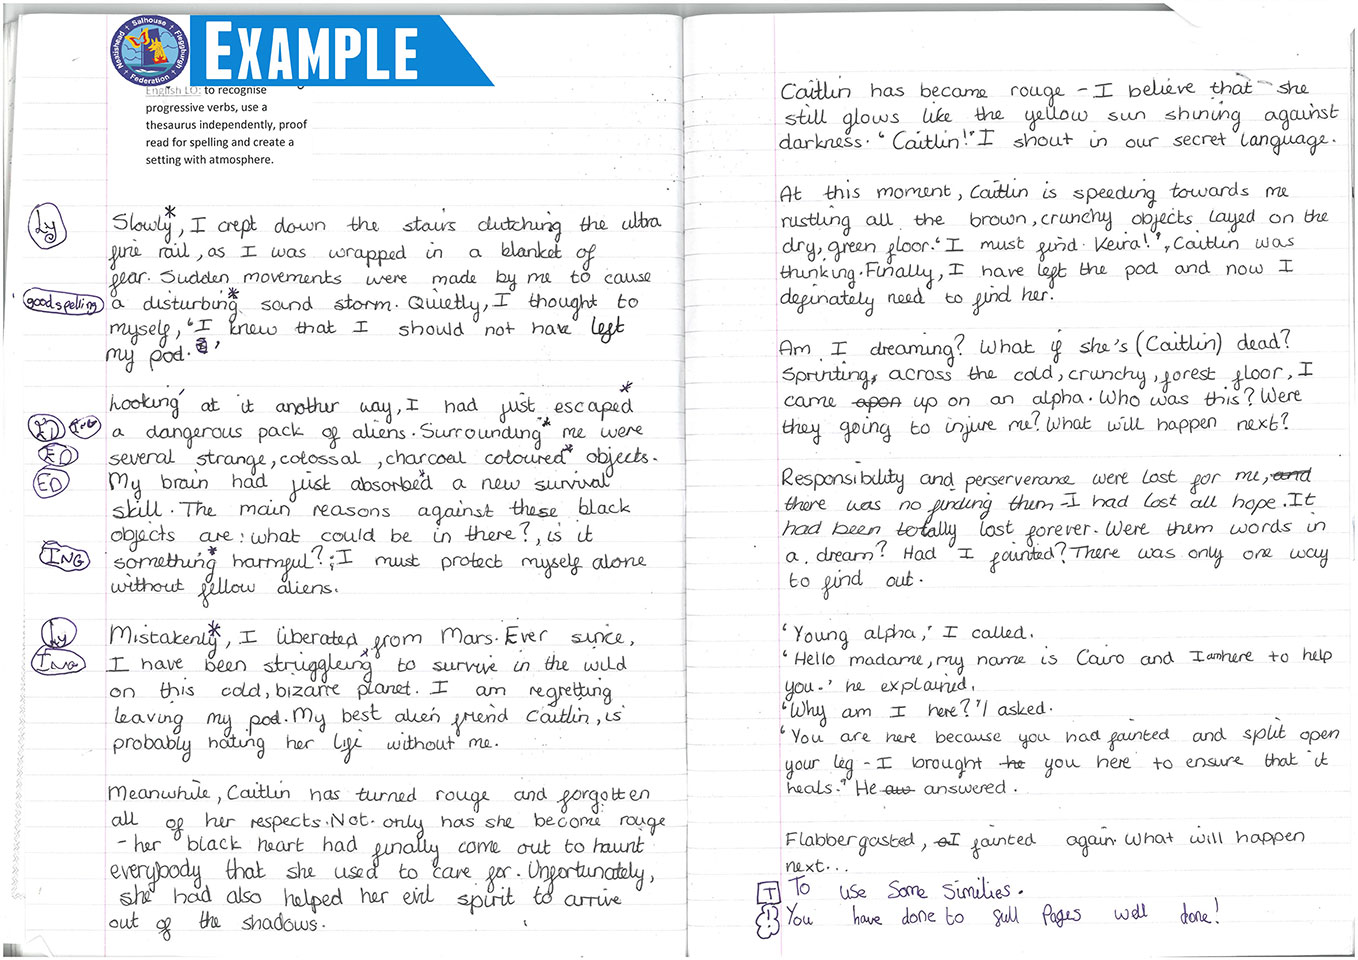 Nacton Salhouse Fleggburgh
Federation
EXAMPLE
English LO: to recognise
progressive verbs, use a
thesaurus independently, proof
read for spelling and create a
setting with atmosphere.
Ly
Slowly*, I crept down the stairs clutching the ultra
fine rail, as I was wrapped in a blanket of
fear. Sudden movements were made by me to cause
good spelling
a disturbing* sound storm. Quietly, I thought to
myself, 'I knew that I should not have left
my pod.'
Looking at it another way, I had just escaped*
a dangerous pack of aliens. Surrounding* me were
ED
several strange, colossal, charcoal coloured* objects.
ED
My brain had just absorbed* a new survival
skill. The main reasons against these black
objects are: what could be in there?, is it
ING
something* harmful?; I must protect myself alone
without fellow aliens.
Ly
Mistakenly*, I liberated from Mars. Ever since,
ING
I have been struggleing* to survive in the wild
on this cold, bizarre planet. I am regretting
leaving my pod. My best alien friend Caitlin, is
probably hating her life without me.
Meanwhile, Caitlin has turned rouge and forgotten
all of her respects. Not only has she become rouge
- her black heart had finally come out to haunt
everybody that she used to care for. Unfortunately,
she had also helped her evil spirit to arrive
out of the shadows.
Caitlin has became rouge - I believe that she
still glows like the yellow sun shining against
darkness. 'Caitlin!' I shout in our secret language.
At this moment, Caitlin is speeding towards me
rustling all the brown, crunchy objects layed on the
dry, green floor. 'I must find Keira!', Caitlin was
thinking. Finally, I have left the pod and now I
definately need to find her.
Am I dreaming? What if she's (Caitlin) dead?
Sprinting, across the cold, crunchy, forest floor, I
came apon up on an alpha. Who was this? Were
they going to injure me? What will happen next?
Responsibility and perserverance were lost for me, and
there was no finding them - I had lost all hope. It
had been totally lost forever. Were them words in
a dream? Had I fainted? There was only one way
to find out.
'Young alpha,' I called.
'Hello madame, my name is Cairo and I am here to help
you.' he explained.
'Why am I here?' I asked.
'You are here because you had fainted and split open
your leg - I brought he you here to ensure that it
heals.' He answered.
Flabbergasted, I fainted again. What will happen
next...
T To use some similies.
! You have done to full pages well done!